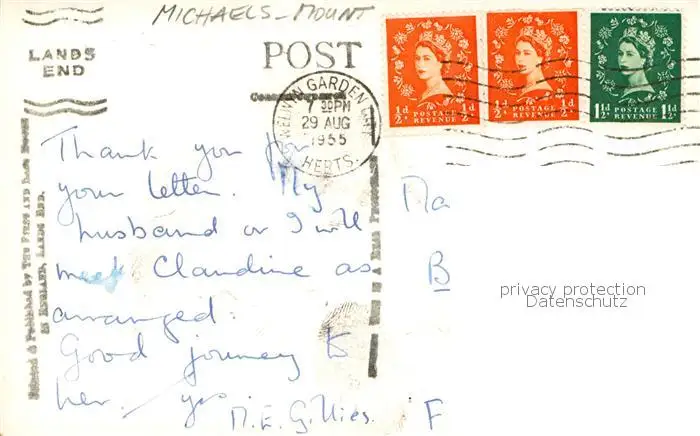 MICHAELS-MOUNT
LANDS
END
POST
WELWYN GARDEN CITY
30PM
29 AUG
1955
HERTS.
½d ½d
POSTAGE
REVENUE
½d ½d
POSTAGE
REVENUE
1½d 1½d
POSTAGE
REVENUE
Thank you for
your letter. My
husband or I will
meet Claudine as
arranged.
Good journey to
her.
M.E. Gillies.
Ma
B
F
Published by The First and Last House
in England, Lands End.
This is a Real Photograph
privacy protection
Datenschutz